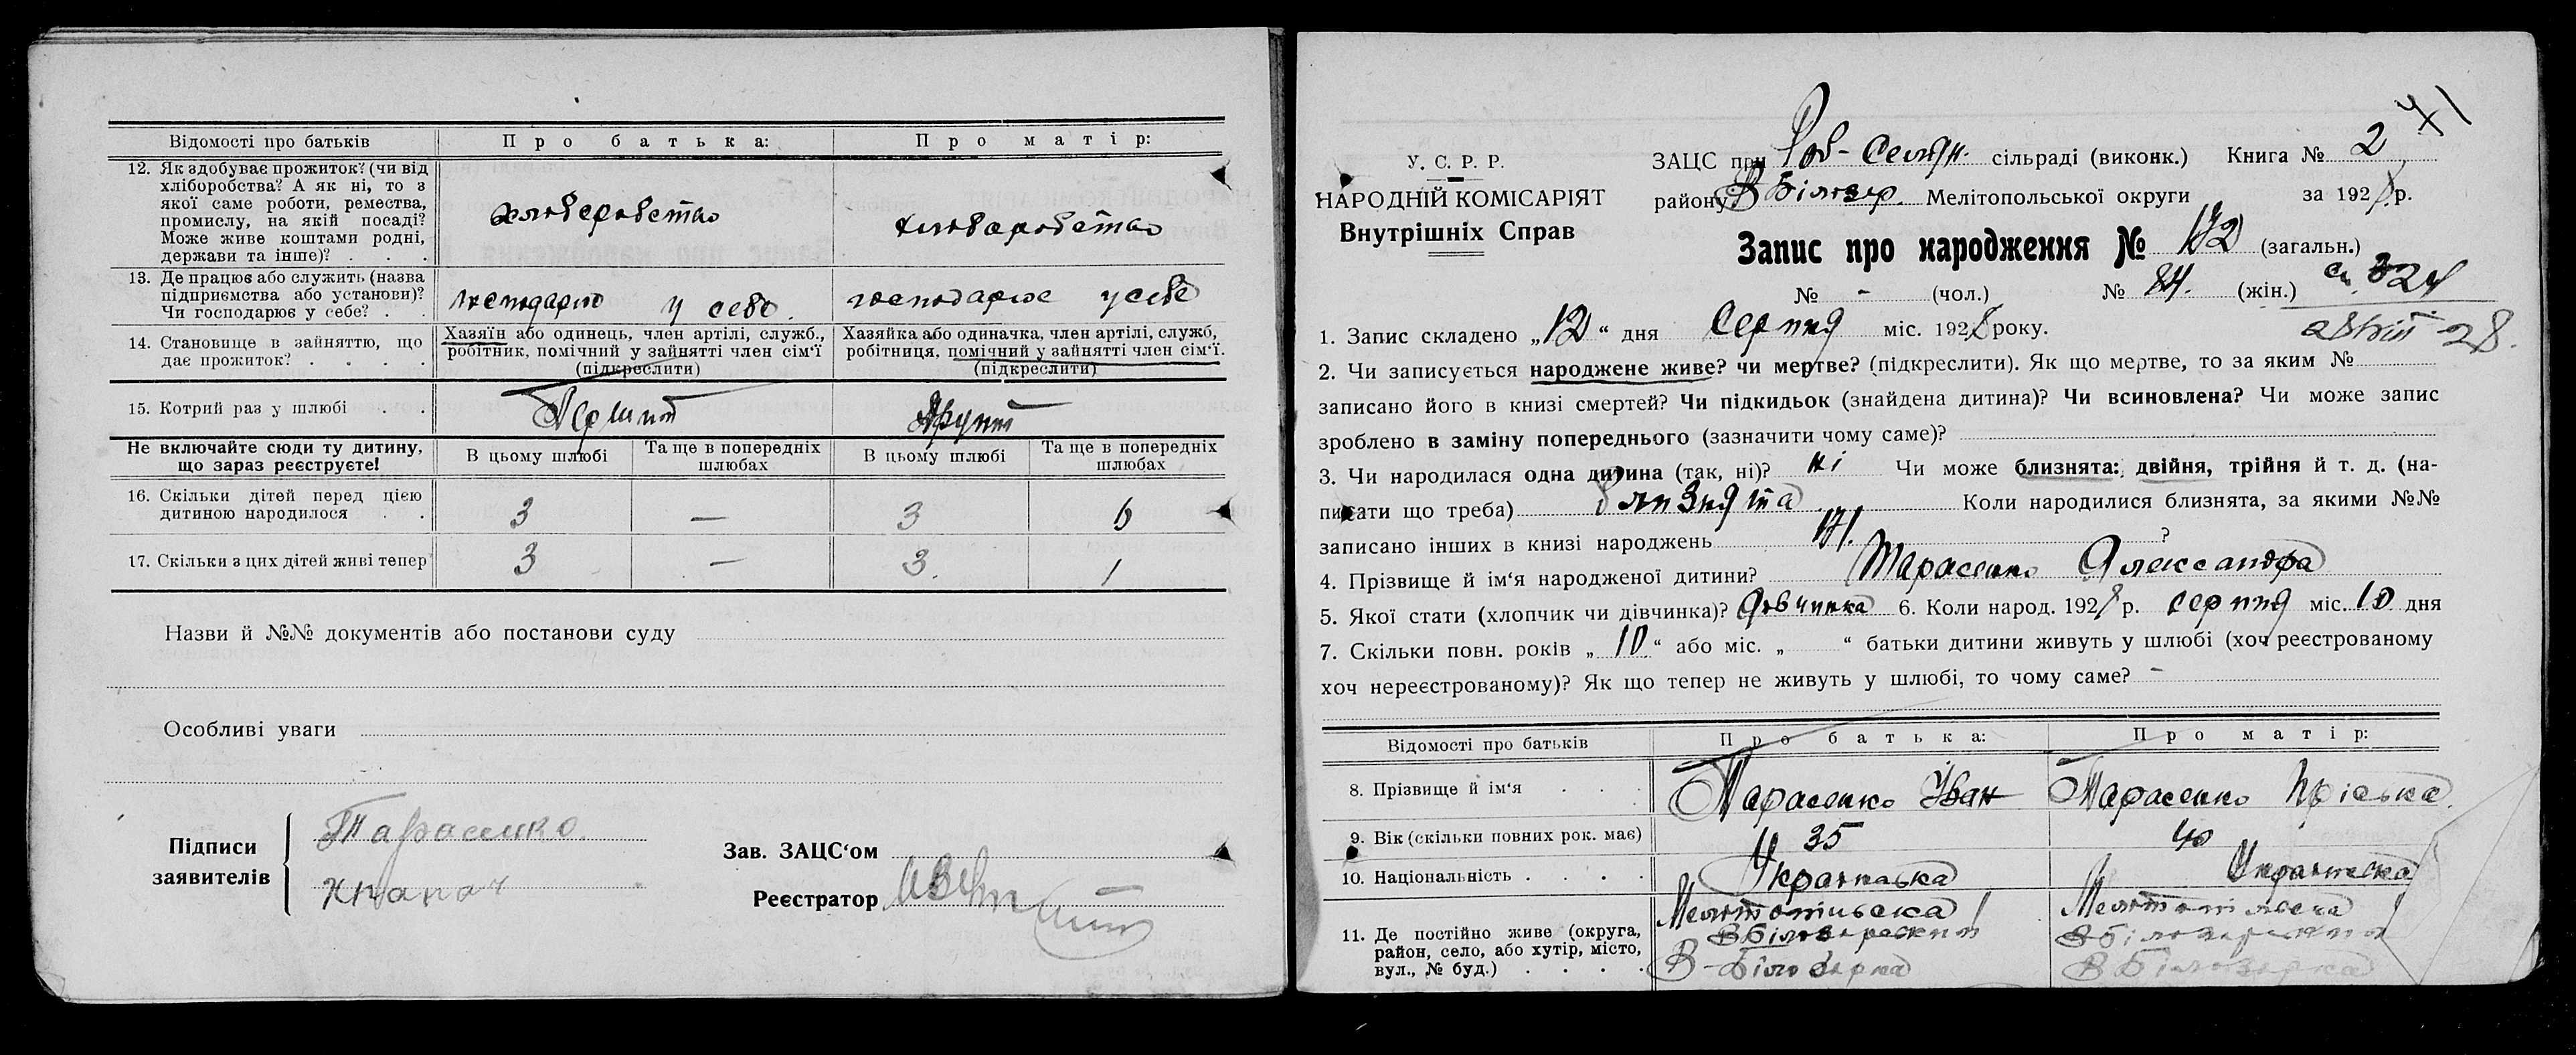 Відомості про батьків
Про батька:
Про матір:
12. Як здобуває прожиток? (чи від
хліборобства? А як ні, то з
якої саме роботи, ремества,
промислу, на якій посаді?
Може живе коштами родні,
держави та інше)? . . .
хлеборобство
хлеборобство
13. Де працює або служить (назва
підприємства або установи)?
Чи господарює у себе? . .
господарює у себе.
господарює у себе
14. Становище в зайняттю, що
дає прожиток? . . . .
Хазяїн або одинець, член артілі, служб.,
робітник, помічний у зайнятті член сім'ї
(підкреслити)
Хазяйка або одиначка, член артілі, служб,
робітниця, помічний у зайнятті член сім'ї.
(підкреслити)
15. Котрий раз у шлюбі . .
Перший
Другий
Не включайте сюди ту дитину,
що зараз реєструєте!
В цьому шлюбі
Та ще в попередніх
шлюбах
В цьому шлюбі
Та ще в попередніх
шлюбах
16. Скільки дітей перед цією
дитиною народилося . .
3 — 3 6
17. Скільки з цих дітей живі тепер
3 — 3. 1
Назви й №№ документів або постанови суду
Особливі уваги
Підписи
заявителів
Тарасенко
Зав. ЗАЦС'ом
Реєстратор
71
У. С. Р. Р.
НАРОДНІЙ КОМІСАРІЯТ
Внутрішніх Справ
ЗАЦС при Роб-Селян. сільраді (виконк.) Книга № 2
району В Білозер. Мелітопольської округи за 1928 р.
Запис про народження № 172 (загальн.)
№ - (чол.) № 84. (жін.)
1. Запис складено „12“ дня Серпня міс. 1928 року.
28.
2. Чи записується народжене живе? чи мертве? (підкреслити). Як що мертве, то за яким №
записано його в книзі смертей? Чи підкидьок (знайдена дитина)? Чи всиновлена? Чи може запис
зроблено в заміну попереднього (зазначити чому саме)?
3. Чи народилася одна дитина (так, ні)? ні Чи може близнята: двійня, трійня й т. д. (на-
писати що треба) близнята Коли народилися близнята, за якими №№
записано інших в книзі народжень 171. ?
4. Прізвище й ім'я народженої дитини? Тарасенко Александра
5. Якої стати (хлопчик чи дівчинка)? Дівчинка 6. Коли народ. 1928 р. серпня міс. 10 дня
7. Скільки повн. років „10“ або міс. „ “ батьки дитини живуть у шлюбі (хоч реєстрованому
хоч нереєстрованому)? Як що тепер не живуть у шлюбі, то чому саме? -
Відомості про батьків
Про батька:
Про матір:
8. Прізвище й ім'я . . .
Тарасенко Іван
Тарасенко Пріська.
9. Вік (скільки повних рок. має)
35
40
10. Національність . . . .
Українська
Українська
11. Де постійно живе (округа,
район, село, або хутір, місто,
вул., № буд.) . . . .
Мелітопільска
В Білозерский
В-Білозерка
Мелітопільска
В Білозерский
В Білозерка